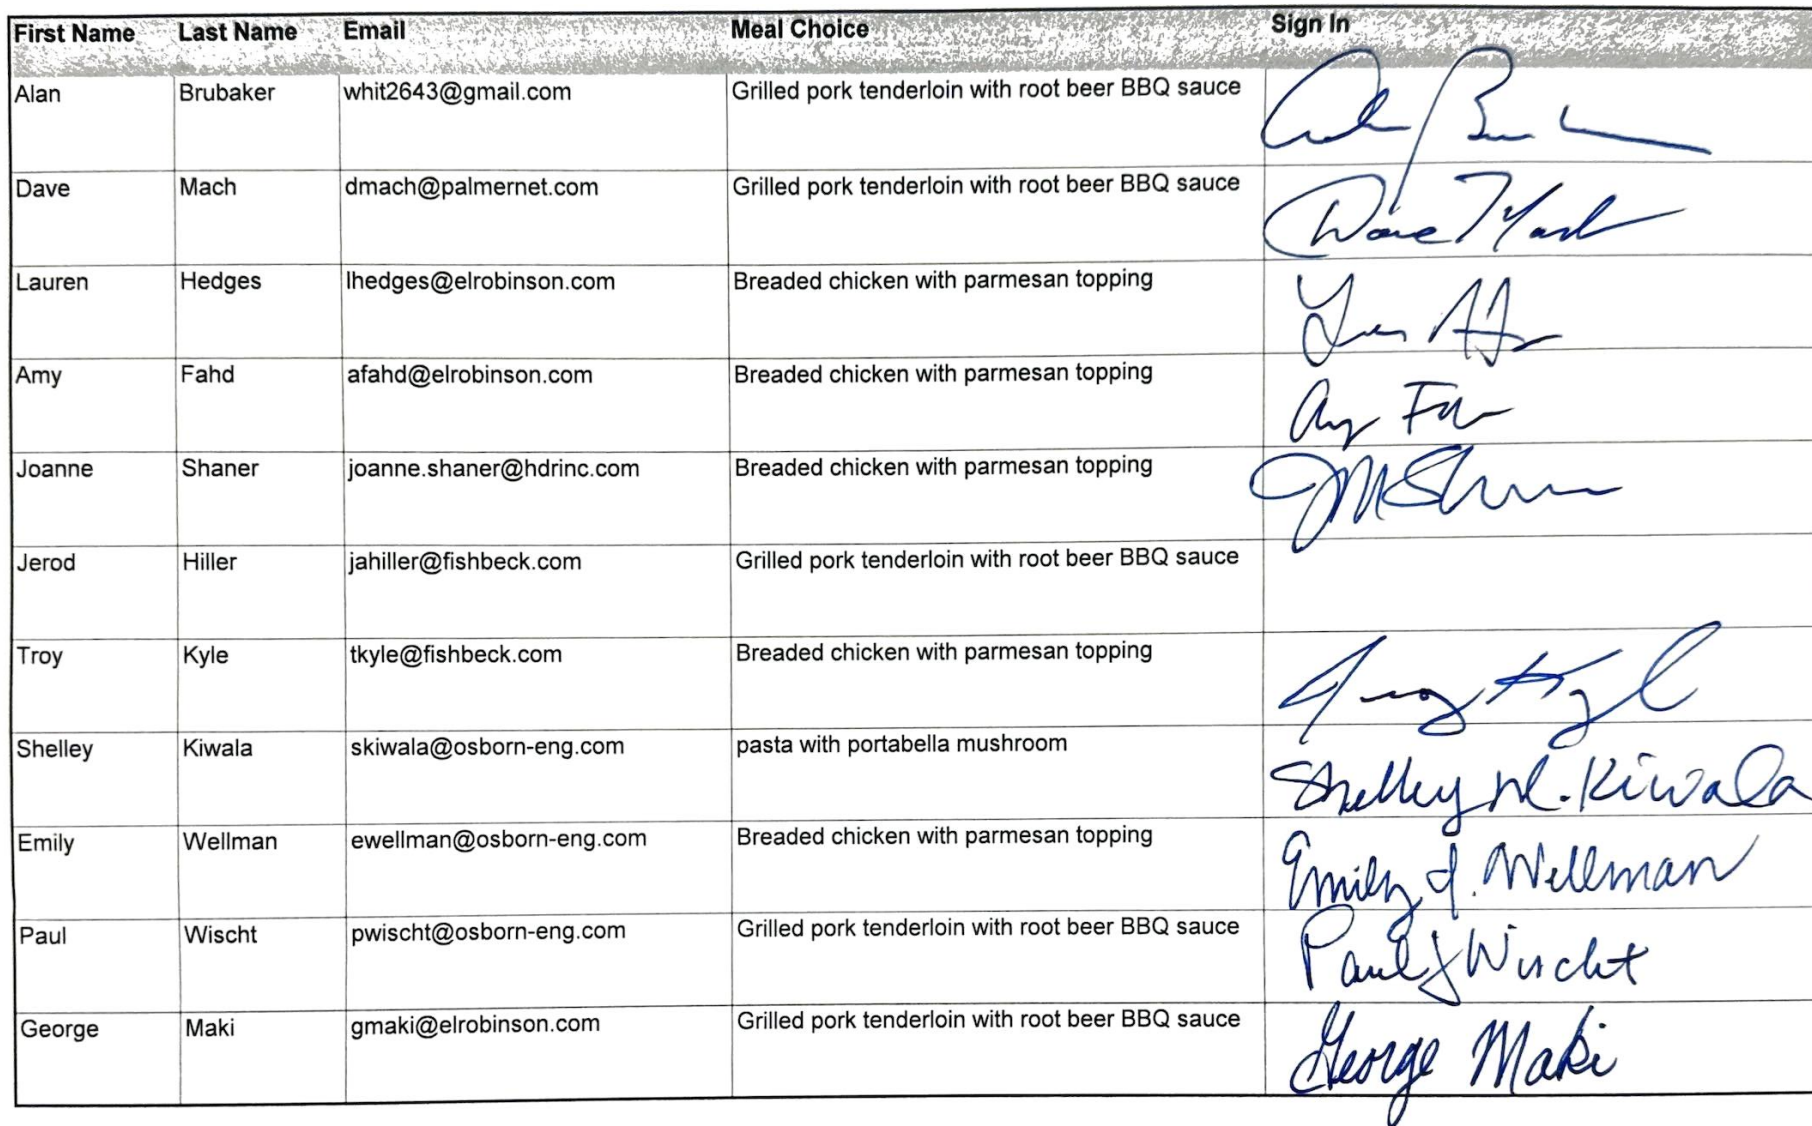 First Name Last Name Email Meal Choice Sign In
Alan Brubaker whit2643@gmail.com Grilled pork tenderloin with root beer BBQ sauce
Dave Mach dmach@palmernet.com Grilled pork tenderloin with root beer BBQ sauce Dave Mach
Lauren Hedges lhedges@elrobinson.com Breaded chicken with parmesan topping
Amy Fahd afahd@elrobinson.com Breaded chicken with parmesan topping Amy
Joanne Shaner joanne.shaner@hdrinc.com Breaded chicken with parmesan topping
Jerod Hiller jahiller@fishbeck.com Grilled pork tenderloin with root beer BBQ sauce
Troy Kyle tkyle@fishbeck.com Breaded chicken with parmesan topping Troy Kyle
Shelley Kiwala skiwala@osborn-eng.com pasta with portabella mushroom Shelley M. Kiwala
Emily Wellman ewellman@osborn-eng.com Breaded chicken with parmesan topping Emily J. Wellman
Paul Wischt pwischt@osborn-eng.com Grilled pork tenderloin with root beer BBQ sauce Paul J Wischt
George Maki gmaki@elrobinson.com Grilled pork tenderloin with root beer BBQ sauce George Maki